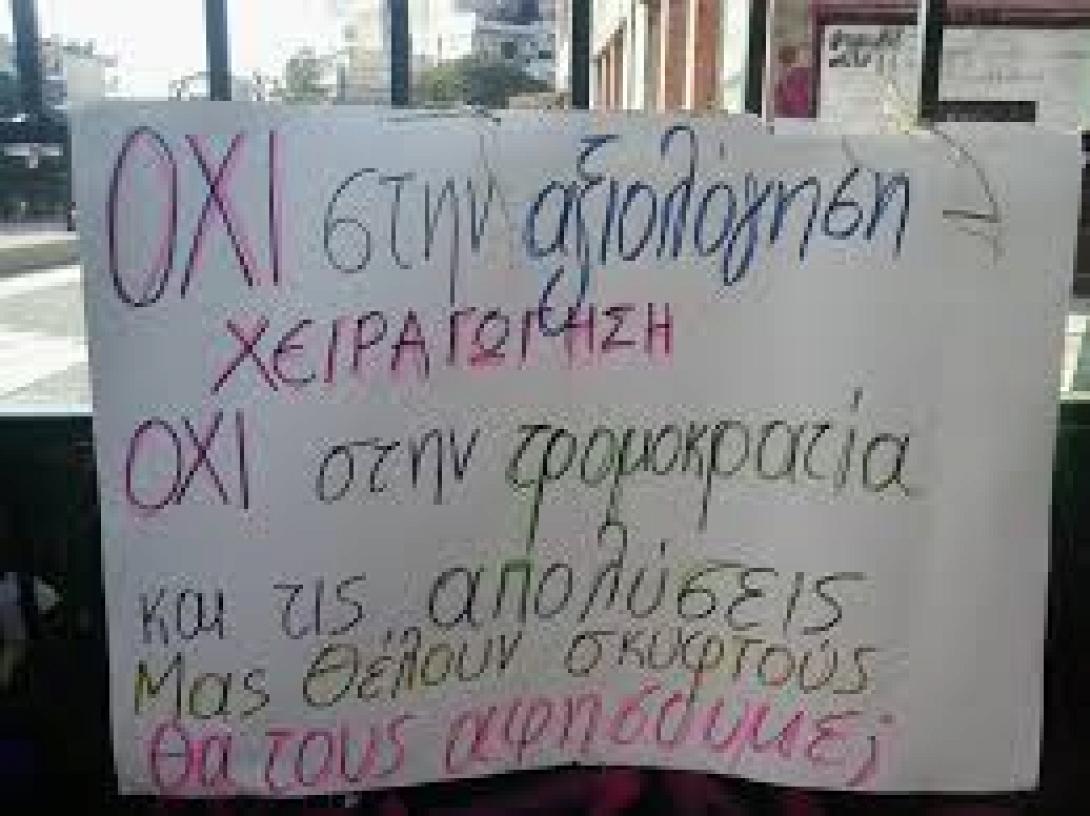 ΟΧΙ στην αξιολόγηση
ΧΕΙΡΑΓΩΓΗΣΗ
ΟΧΙ στην τρομοκρατία
και τις απολύσεις
Μας θέλουν σκυφτούς
θα τους αφήσουμε;